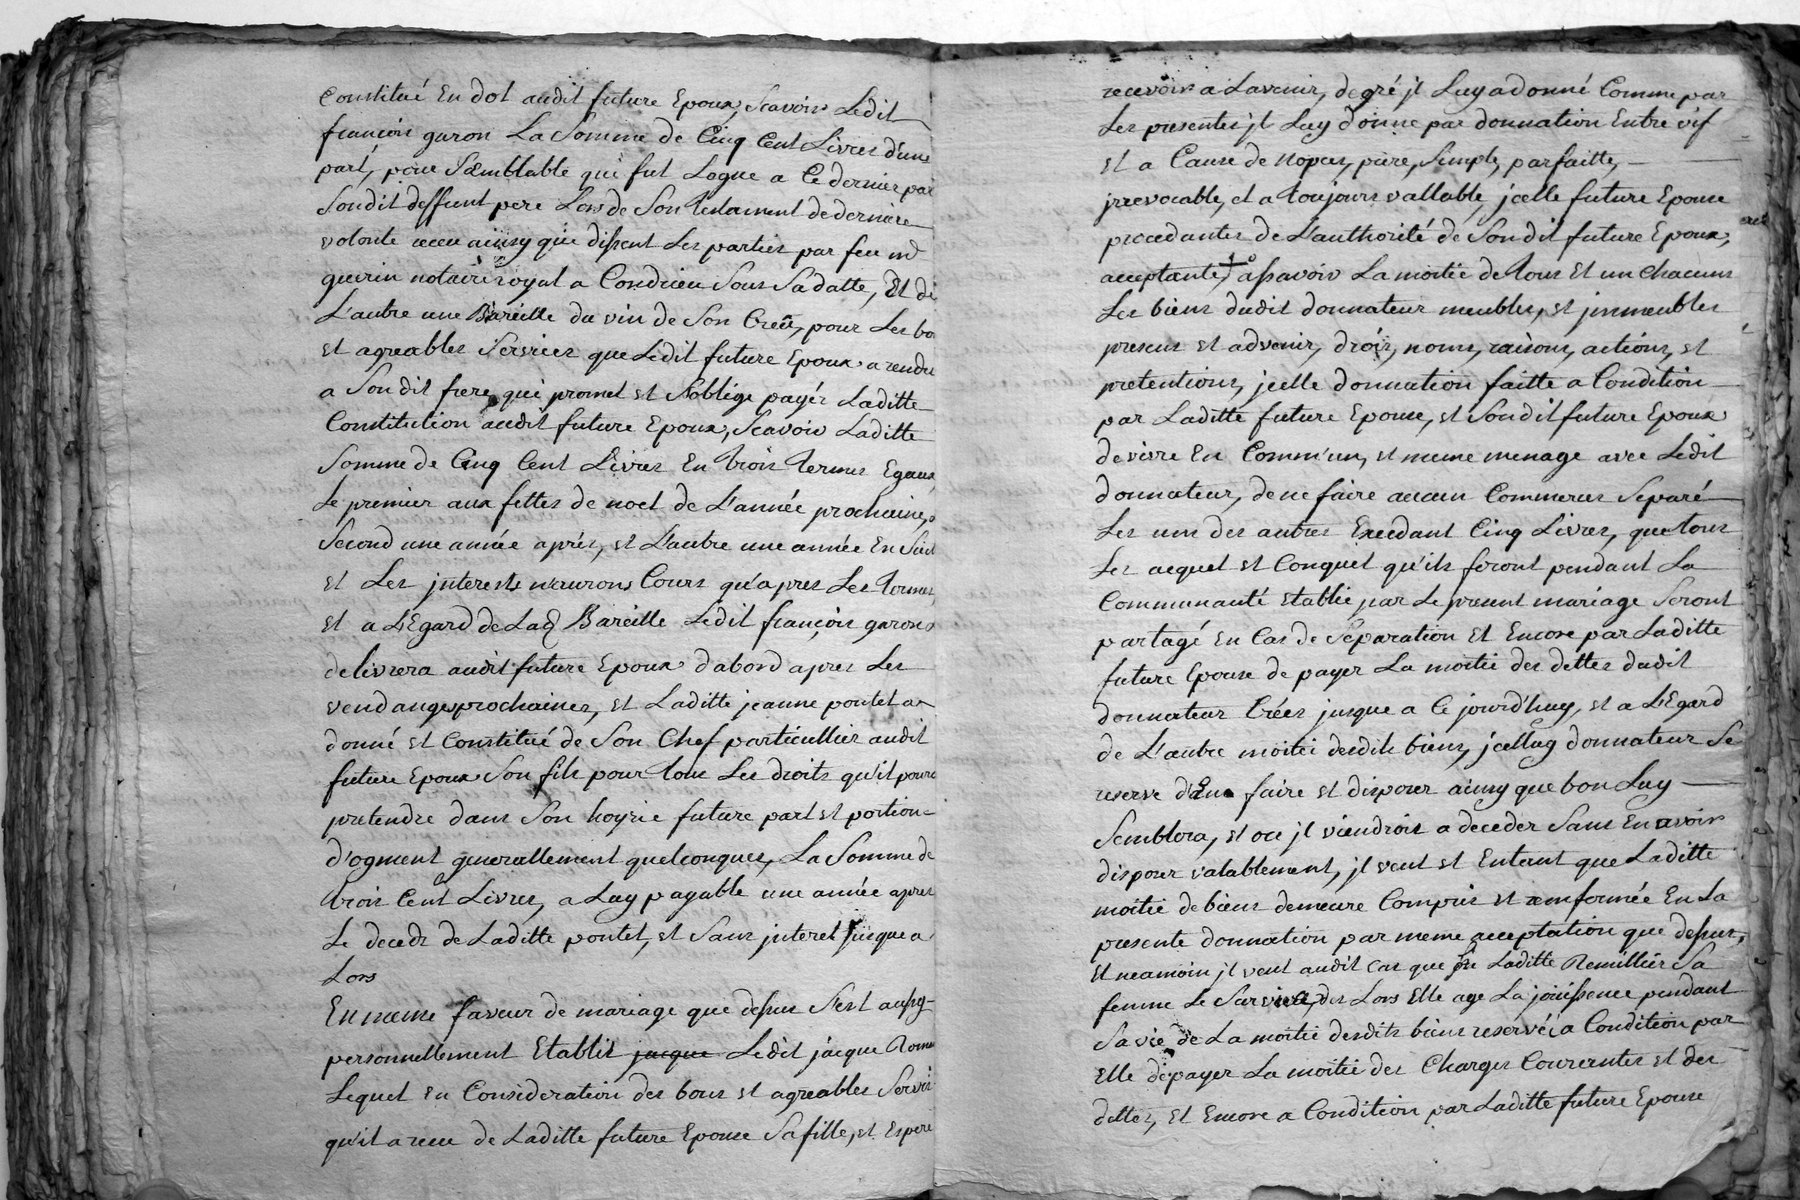 Constitué En dot audit future Epoux, Scavoir Ledit
françois garon La Somme de Cinq Cent Livres d'une
part, pour Semblable qui fut Legue a Ce dernier par
Sondit deffunt pere Lors de Son testament de derniere
volonte receu ainsy que disent Les parties par feu me
guerin notaire royal a Condrieu Sous Sa datte, Et de
L'autre une Bareille du vin de Son Creû, pour Les bo
et agreables Services que Ledit future Epoux a rendu
a Son dit frere, qui promet et S'oblige payér Laditte
Constitution audit future Epoux, Scavoir Laditte
Somme de Cinq Cent Livres En trois termes Egaux,
Le premier aux fettes de noel de L'année prochaine,
Second une année aprés, et L'autre une année En Suit
et Les jnterests n'aurons Cours qu'apres Les termes,
et a L'Egard de Lad Bareille Ledit françois garon
delivrera audit future Epoux d'abord apres Les
vendanges prochaines, et Laditte jeanne pontet a
donné et Constitué de Son Chef particullier audit
future Epoux Son fils pour tous Les droits qu'il pourra
pretendre dans Son hoyrie future part et portion
d'ogment generallement quelconques, La Somme de
trois Cent Livres, a Luy payable une année apres
Le deceds de Laditte pontet, et Sans jnteret jusque a
Lors
En meme faveur de mariage que dessus S'est aussy
personnellement Etablit jacque Ledit jacque
Lequel En Consideration des bons et agreables Servi
qu'il a receu de Laditte future Epouse Sa fille, et Espere
recevoir a Lavenir, de gré jl Luy a donné Comme par
Les presentes jl Luy donne par donnation Entre vif
et a Cause de nopces, pure, Simple, parfaitte,
jrrevocable, et a toujours vallable, jcelle future Epouse
procedantes de L'authorité de Sondit future Epoux,
acceptante, assavoir La moitié de tous Et un Chacuns
Les biens dudit donnateur meubles, et jmmeubles
presens et advenir, drois, noms, raisons, actions, et
pretentions, jcelle donnation faitte a Condition
par Laditte future Epouse, et Sondit future Epoux
de vivre En Comm'un, et meme menage avec Ledit
donnateur, de ne faire aucun Commerces Separé
Les uns des autres Excedant Cinq Livres, que tous
Les acquet et Conquet qu'ils feront pendant La
Communauté Etablie par Le present mariage Seront
partagé En Cas de Séparation Et Encore par Laditte
future Epouse de payer La moitié des dettes dudit
donnateur Créés jusque a Ce jourd'huy, et a L'Egard
de L'autre moitié desdits biens, jcelluy donnateur Se
reserve d'En faire et disposer ainsy que bon Luy
Semblera, et ou jl viendroit a deceder Sans En avoir
disposer valablement, jl veut et Entent que Laditte
moitié de biens demeure Compris et renfermée En La
presente donnation par meme acceptation que dessus,
et neamoin jl veut audit Cas que Laditte Remillier Sa
femme Le Survive, des Lors Elle aye La jouissence pendant
Sa vie de La moitié desdits biens reservé, a Condition par
Elle de payer La moitié des Charges Courrentes et des
dettes, Et Encore a Condition par Laditte future Epouse